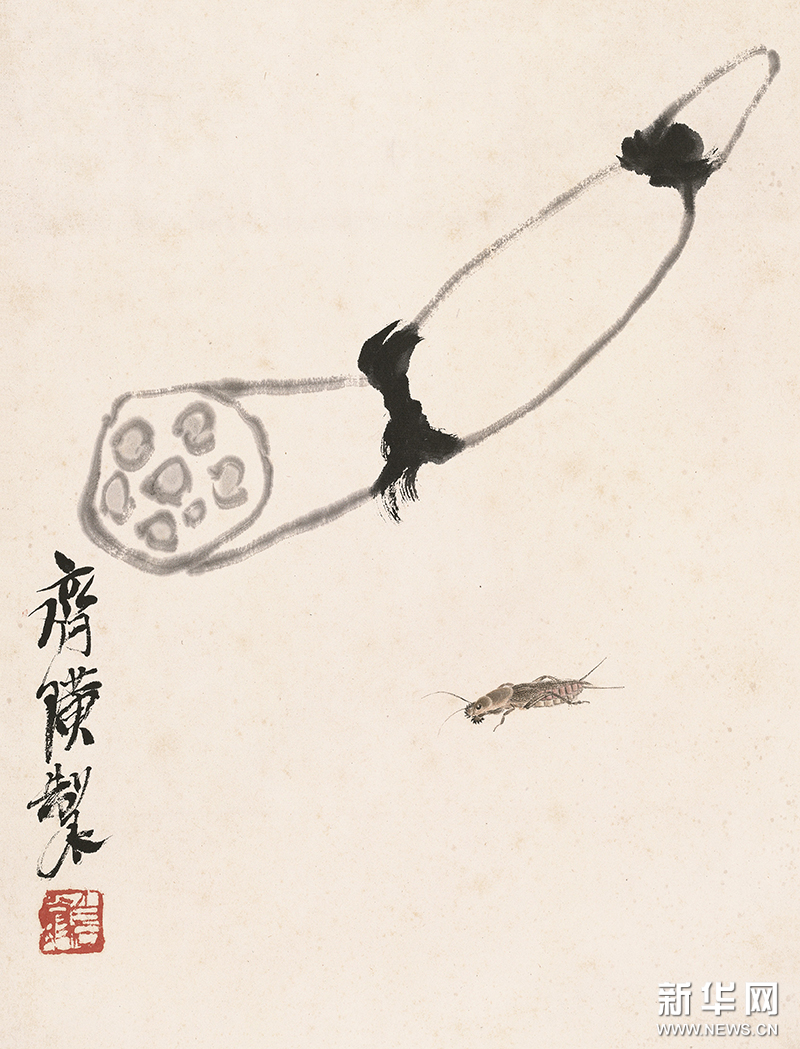 齊璜製
新华网
WWW.NEWS.CN